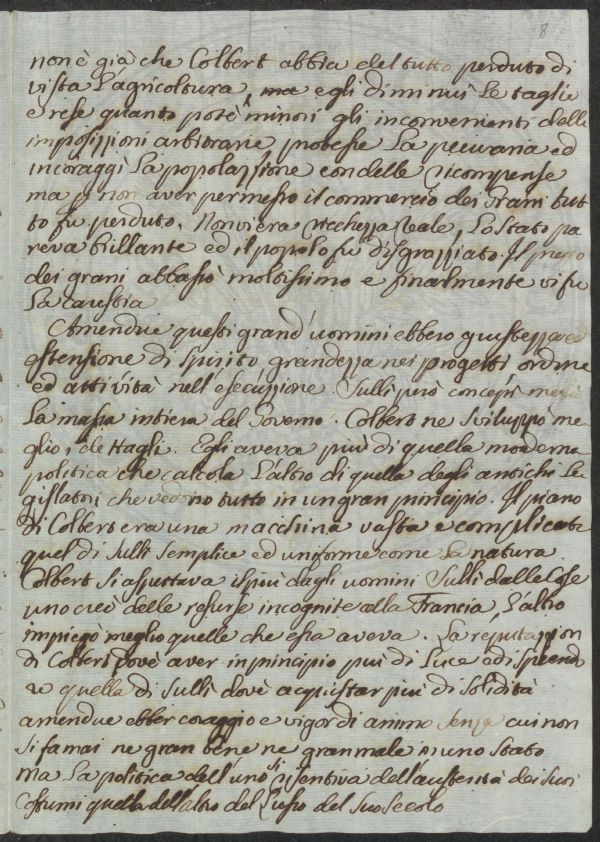 8
non è già che Colbert abbia del tutto perduto di
vista L'agricoltura, ma egli diminuì Le taglie
e rese quanto potè minori gli inconvenienti delle
imposizzioni arbitrarie protesse La pecuaria ed
incoraggì La popolazzione con delle ricompense
ma p non aver permesso il commercio dei Grani tut
to fu perduto. Non viera ricchezza reale, Lo Stato pa
reva brillante ed il popolo fu disgrazziato. Il prezzo
dei grani abbassò moltissimo e finalmente vi fu
La carestia
Amendue questi grand'uomini ebbero giustezza ed
estensione di spirito grandezza nei progetti ordine
ed attività nell'esecuzzione. Sullì però concepì meglio
La massa intiera del Governo. Colbert ne sviluppò me
glio i dettagli. Egli aveva più di quella moderna
politica che calcola L'altro di quella degli antichi Le
gislatori che vedono tutto in un gran principio. Il piano
di Colbert era una macchina vasta e complicata
quel di Sullì semplice ed uniforme come La natura.
Colbert si aspettava il più dagli uomini Sullì dalle Cose
uno creò delle resurse incognite alla Francia, L'altro
impiegò meglio quelle che essa aveva. La reputazzion
di Colbert dovè aver in principio più di Luce e di splend
re quella di Sullì dovè acquistar più di solidità
amendue ebber coraggio e vigor di animo senza cui non
si fa mai ne gran bene ne gran male in uno Stato
ma La politica dell'uno si risentiva dell'austerità dei suoi
Costumi quella dell'altro del Lusso del suo Secolo